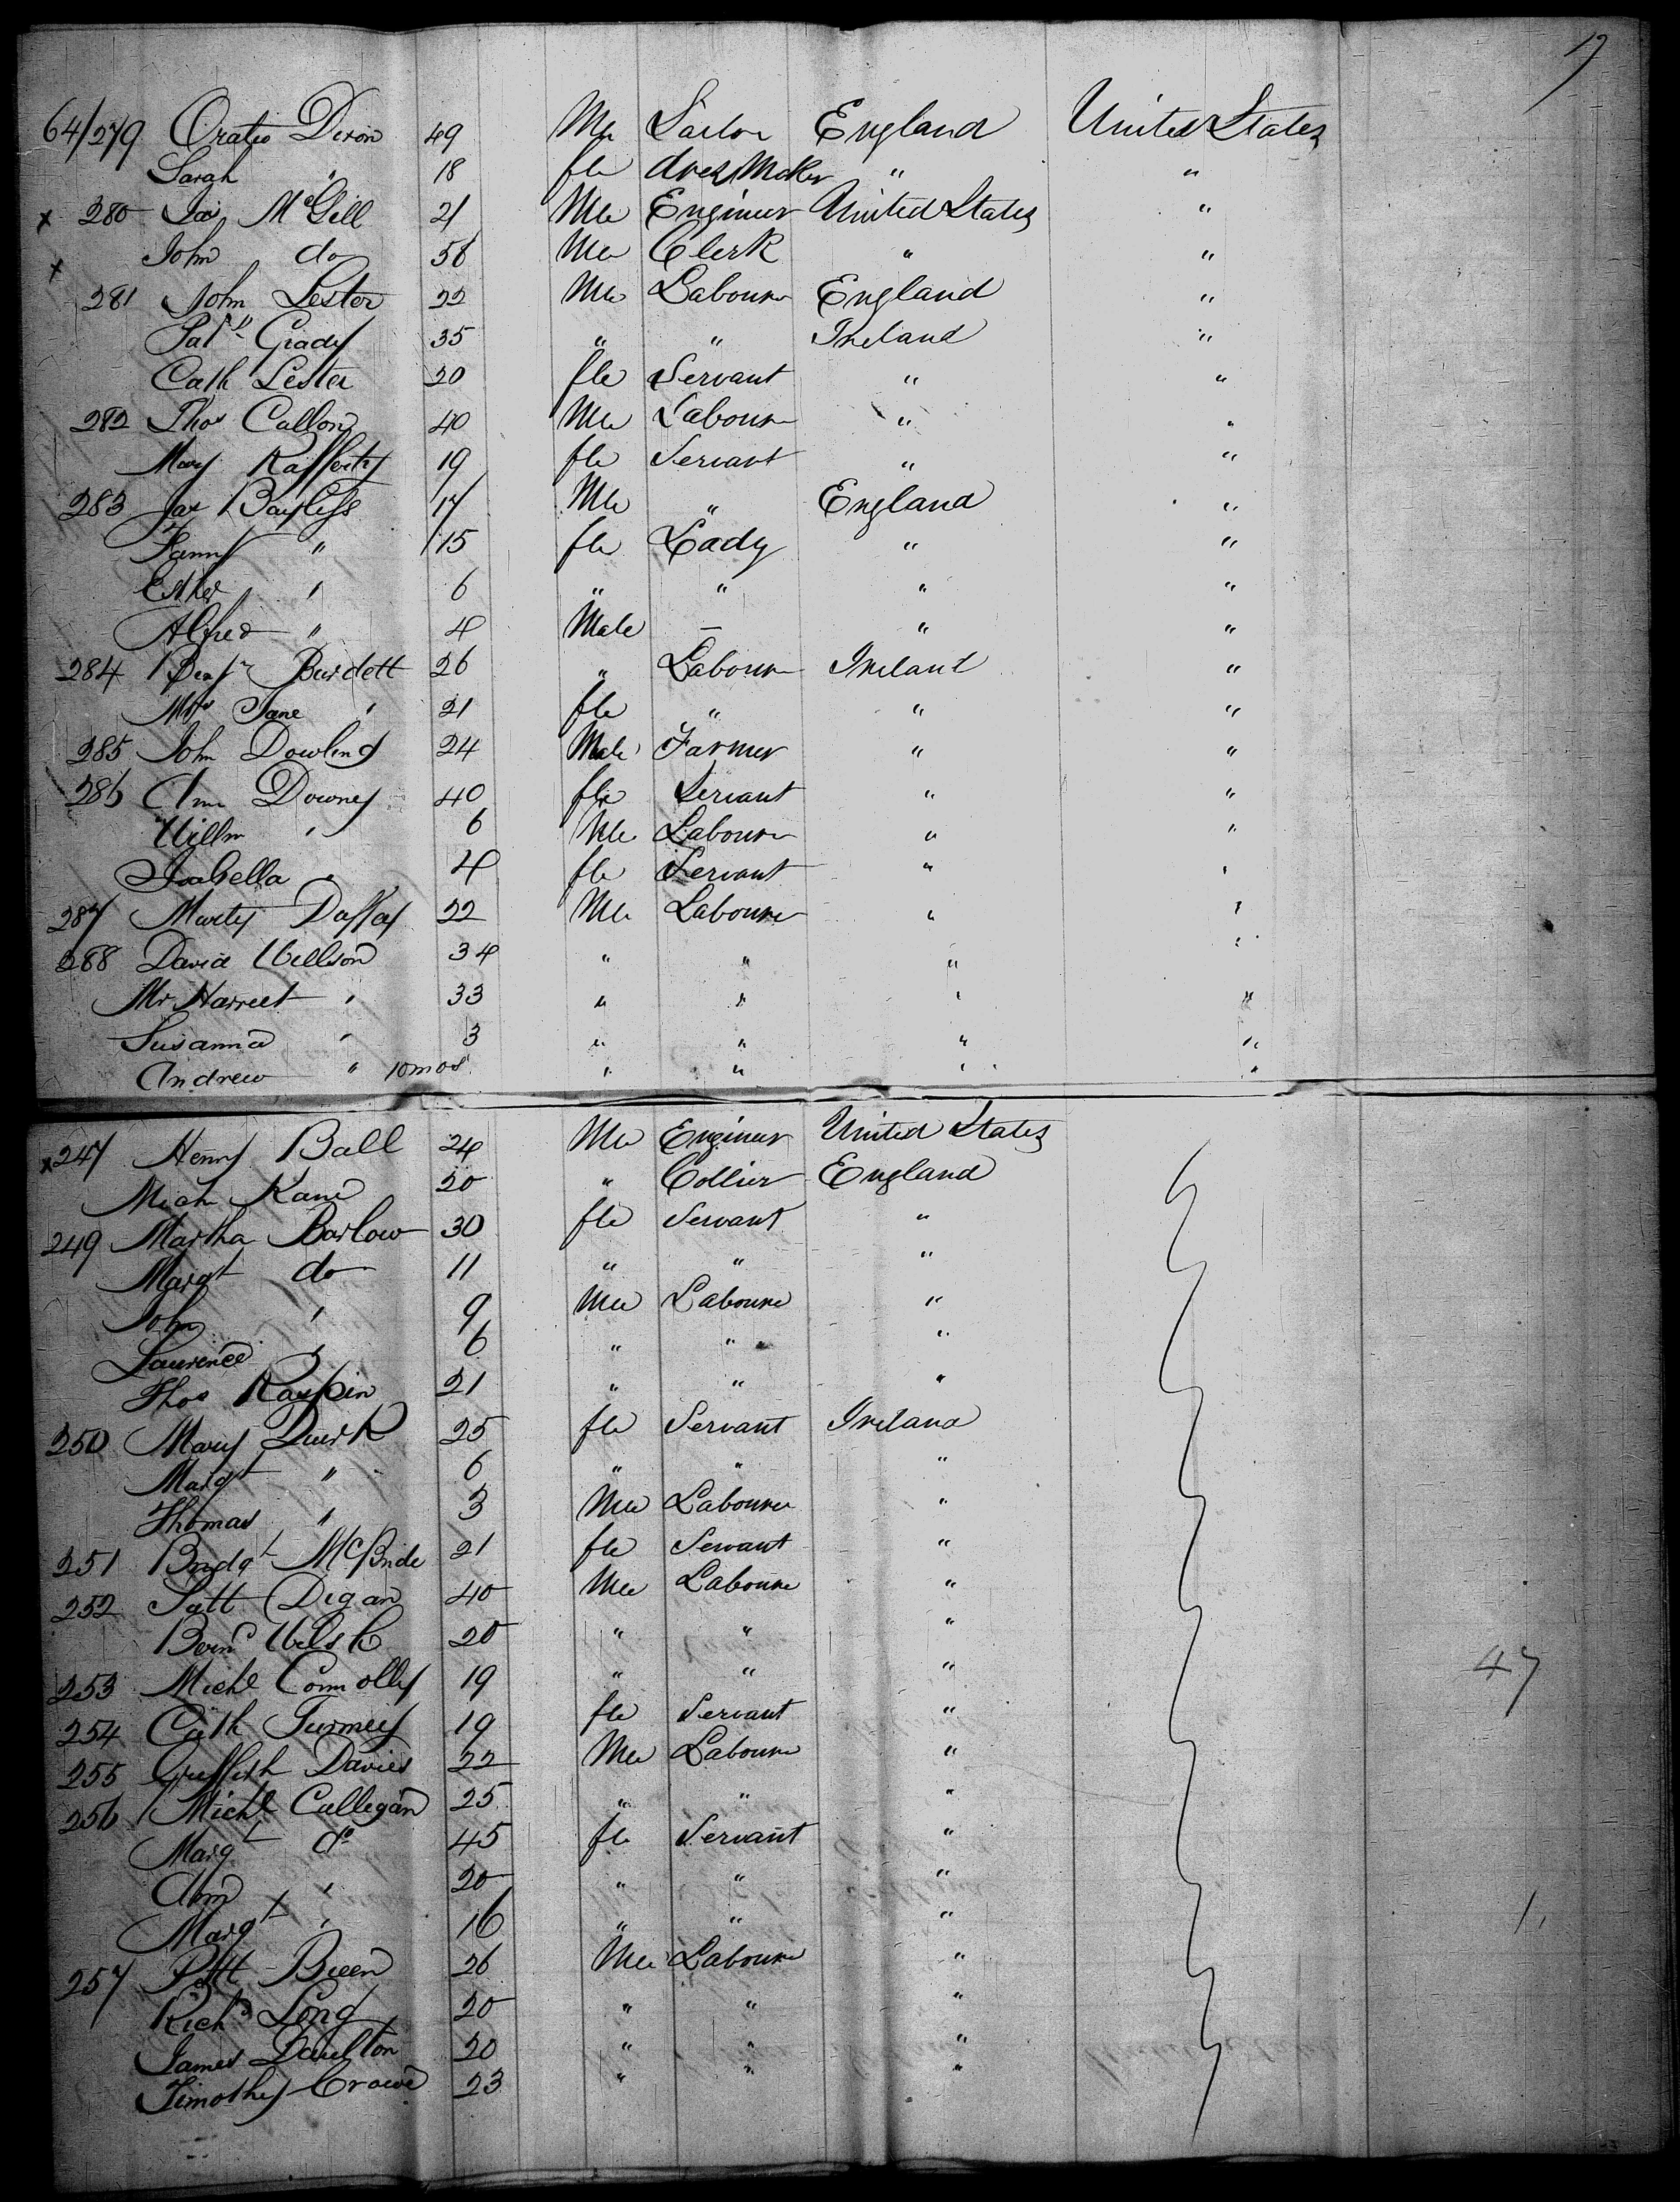 17
64/279 Oratio Dixon 49 Mle Sailor England United States
Sarah " 18 fle dres Maker " "
x 280 Jas McGill 21 Mle Engineer United States "
x John do 56 Mle Clerk " "
281 John Lester 22 Mle Labourer England "
Patk Grady 35 " " Ireland "
Cath Lester 20 fle Servant " "
282 Thos Callon 40 Mle Labourer " "
Mary Rafferty 19 fle Servant " "
283 Jas Bayliss 17 Mle " England "
Fanny " 15 fle Lady " "
Esther " 6 " " " "
Alfred " 4 Male – " "
284 Benjn Burdett 26 " Labourer Ireland "
Mrs Jane " 21 fle " " "
285 John Dowling 24 Male Farmer " "
286 Ann Downey 40 fle Servant " "
Willm " 6 Mle Labourer " "
Isabella " 4 fle Servant " "
287 Marty Daffay 22 Mle Labourer " "
288 David Willson 34 " " " "
Mr Harriet " 33 " " " "
Susanna " 3 " " " "
Andrew " 10 mos " " " "
x 247 Henry Ball 24 Mle Engineer United States
Mich Kane 20 " Collier England
249 Martha Barlow 30 fle Servant "
Margt do 11 " " "
John " 9 Mle Labourer "
Laurence " 6 " " "
Thos 21 " " "
250 Mary Quirk 25 fle Servant Ireland
Margt " 6 " " "
Thomas " 3 Mle Labourer "
251 Bridgt McBride 21 fle Servant "
252 Patt Digan 40 Mle Labourer "
Bernd Welsh 20 " " "
253 Michl Connolly 19 " " "
254 Cath Turmey 19 fle Servant "
255 Griffith Davies 22 Mle Labourer "
256 Michl Callegan 25 " " "
Margt do 45 fle Servant "
Ann " 20 " " "
Margt " 16 " " "
257 Patt Breen 26 Mle Labourer "
Richd Long 20 " " "
James Daulton 20 " " "
Timothy Crowe 23 " " "
47
1,